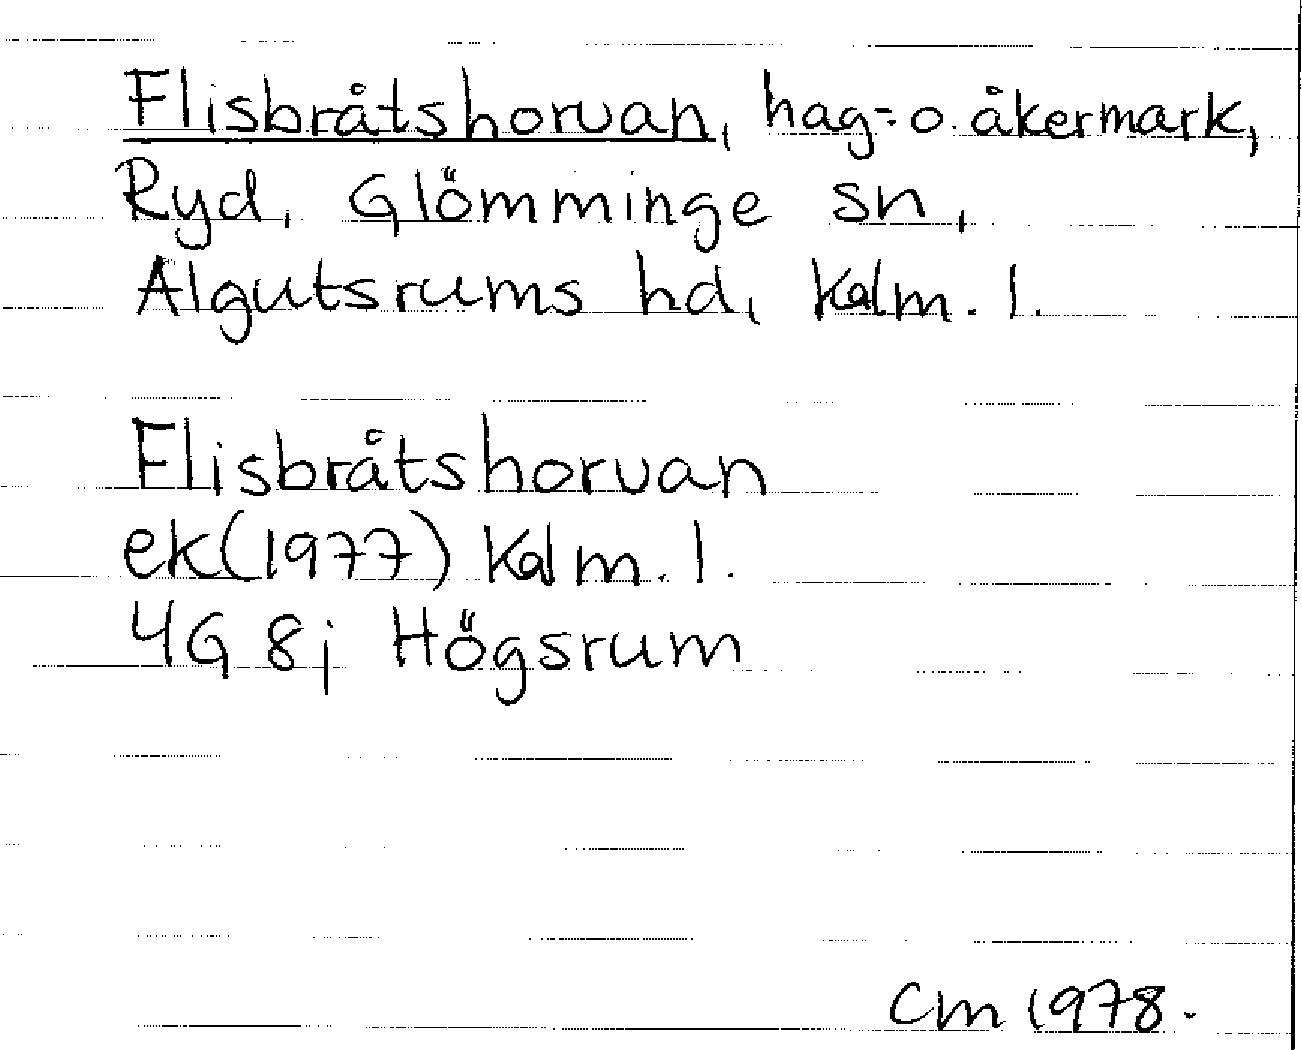 Flisbråtshorvan, hag= o. åkermark,
Ryd, Glömminge sn,
Algutsrums hd, Kalm. l.
Flisbråtshorvan
ek (1977) Kalm. l.
4G 8j Högsrum
Cm 1978.